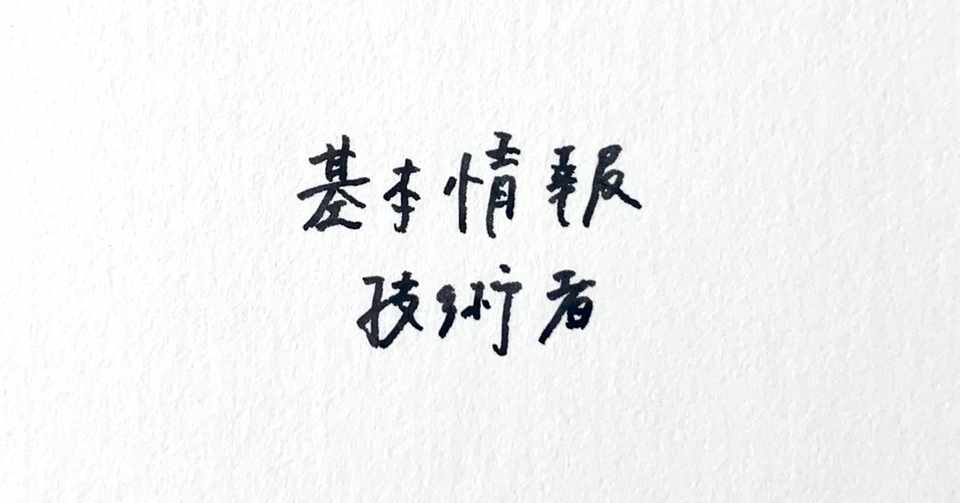 基本情報
技術者